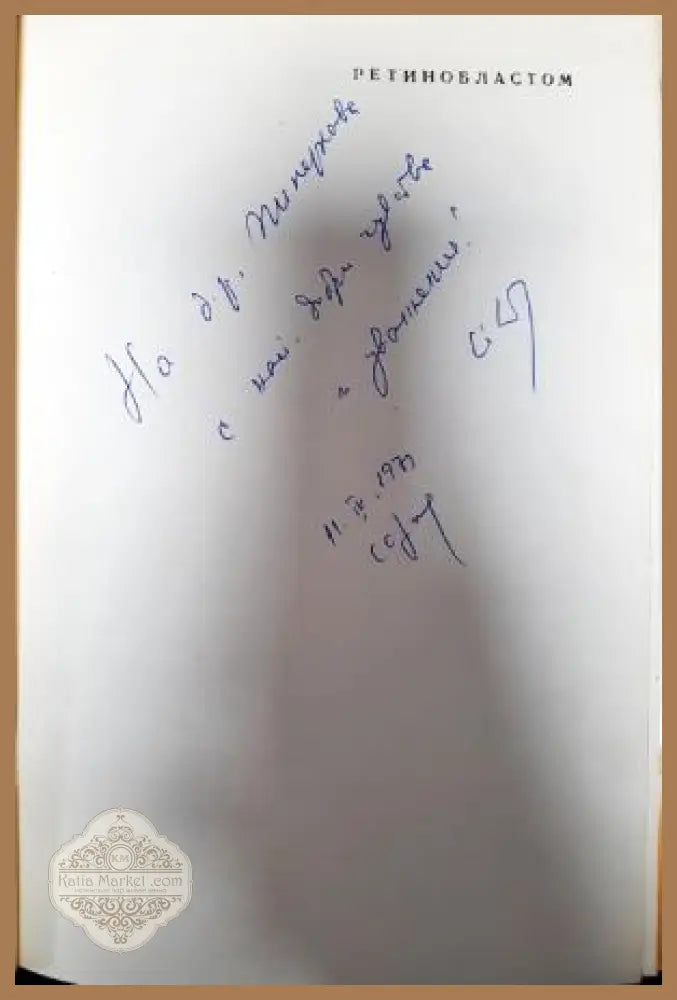 РЕТИНОБЛАСТОМ
На д-р
с най. добри чувства
и уважения.
11. IV. 1971
София
KM
Katia Market .com